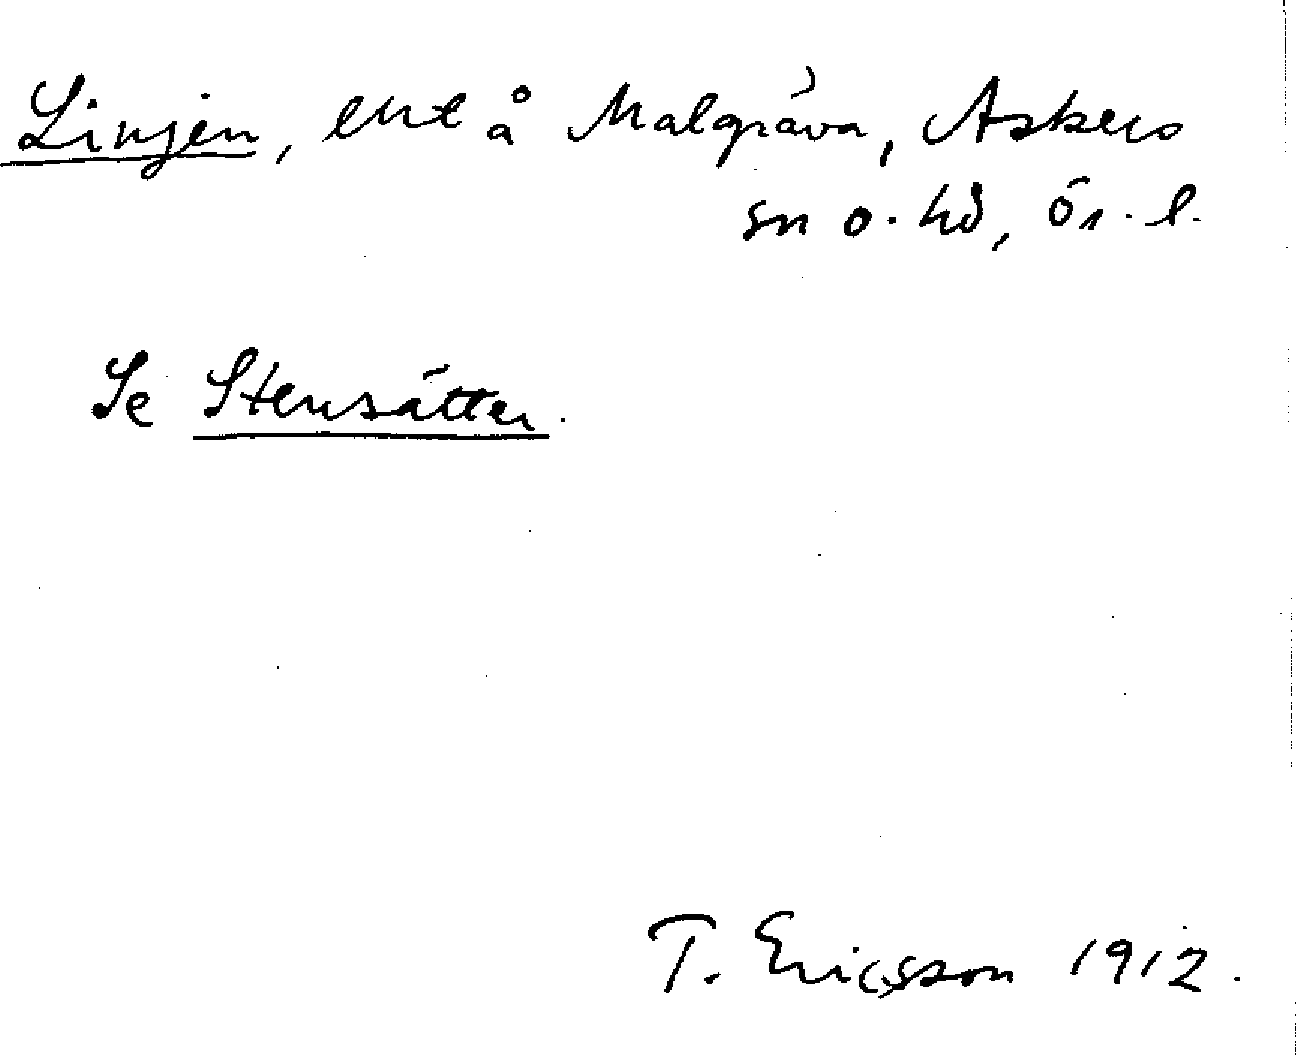 Linjen, ent å Malgräva, Askers
sn o. hd, Ör. l.
Se Stensätter.
T. Ericsson 1912.